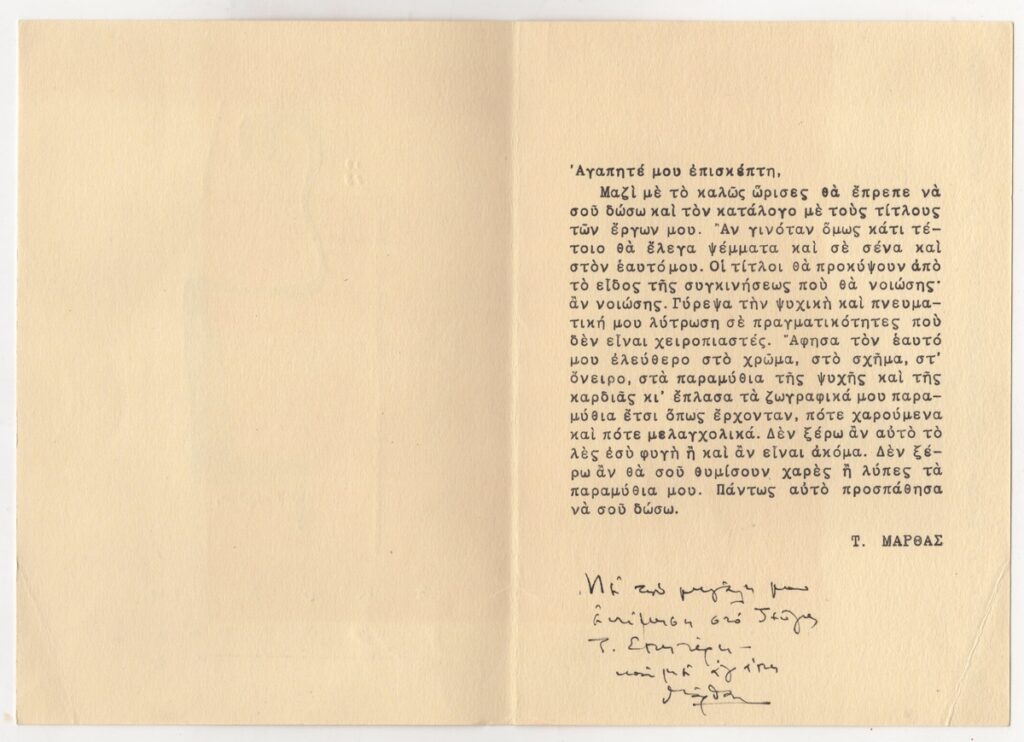 Ἀγαπητέ μου ἐπισκέπτη,
Μαζὶ μὲ τὸ καλῶς ὥρισες θὰ ἔπρεπε νὰ
σοῦ δώσω καὶ τὸν κατάλογο μὲ τοὺς τίτλους
τῶν ἔργων μου. Ἂν γινόταν ὅμως κάτι τέ-
τοιο θὰ ἔλεγα ψέμματα καὶ σὲ σένα καὶ
στὸν ἑαυτό μου. Οἱ τίτλοι θὰ προκύψουν ἀπὸ
τὸ εἶδος τῆς συγκινήσεως ποὺ θὰ νοιώσης·
ἂν νοιώσης. Γύρεψα τὴν ψυχικὴ καὶ πνευμα-
τική μου λύτρωση σὲ πραγματικότητες ποὺ
δὲν εἶναι χειροπιαστές. Ἄφησα τὸν ἑαυτό
μου ἐλεύθερο στὸ χρῶμα, στὸ σχῆμα, στ'
ὄνειρο, στὰ παραμύθια τῆς ψυχῆς καὶ τῆς
καρδιᾶς κι' ἔπλασα τὰ ζωγραφικά μου παρα-
μύθια ἔτσι ὅπως ἔρχονταν, πότε χαρούμενα
καὶ πότε μελαγχολικά. Δὲν ξέρω ἂν αὐτὸ τὸ
λὲς ἐσὺ φυγὴ ἢ καὶ ἂν εἶναι ἀκόμα. Δὲν ξέ-
ρω ἂν θὰ σοῦ θυμίσουν χαρὲς ἢ λύπες τὰ
παραμύθια μου. Πάντως αὐτὸ προσπάθησα
νὰ σοῦ δώσω.
Τ. ΜΑΡΘΑΣ
Μὲ τὴν μεγάλη μου
ἐκτίμηση στὸ ζεῦγος
Τ. Σπητέρη –
καὶ μὲ ἀγάπη
Μάρθας